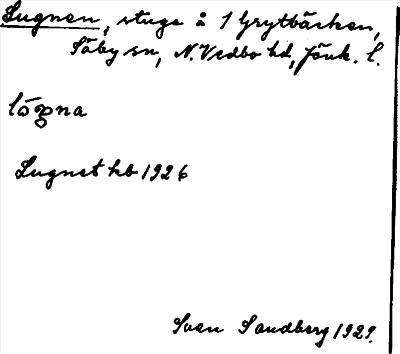 Lugnen, stuga å 1 Grytbäcken,
Säby sn, N. Vedbo hd, Jönk. l.
lóꝍna
Lugnet hb 1926
Sven Sandberg 1929.